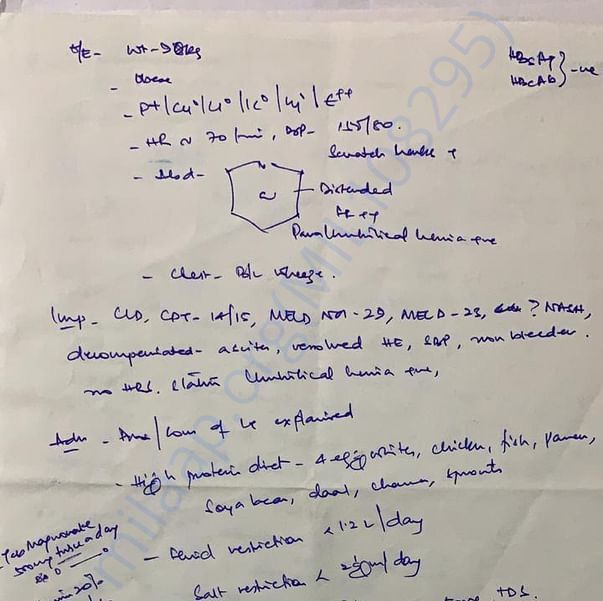 O/E - Wt - 98kg
HBsAg
HBcAb } -ve
- Obese
- P+ | Cy° | Cl° | Ic° | Ly° | E++
- HR ~ 70/min, BP - 155/80.
Scratch marks +
- Abd - Distended
Paraumbilical hernia +ve
- Chest - B/L wheeze.
Imp - CLD, CPT - 14/15, MELD Na - 29, MELD - 23, ? NASH,
decompensated - ascites, resolved HE, SBP, non bleeder.
no HRS. Umbilical hernia +ve,
Adv - Pros/Cons of explained
- High protein diet - 4 egg whites, chicken, fish, paneer,
Soyabean, daal, channa, sprouts
- Fluid restriction < 1.2 L/day
Salt restriction < 2 gm/day
twice a day
20%
TDS.
milaap.org(MIL108295)